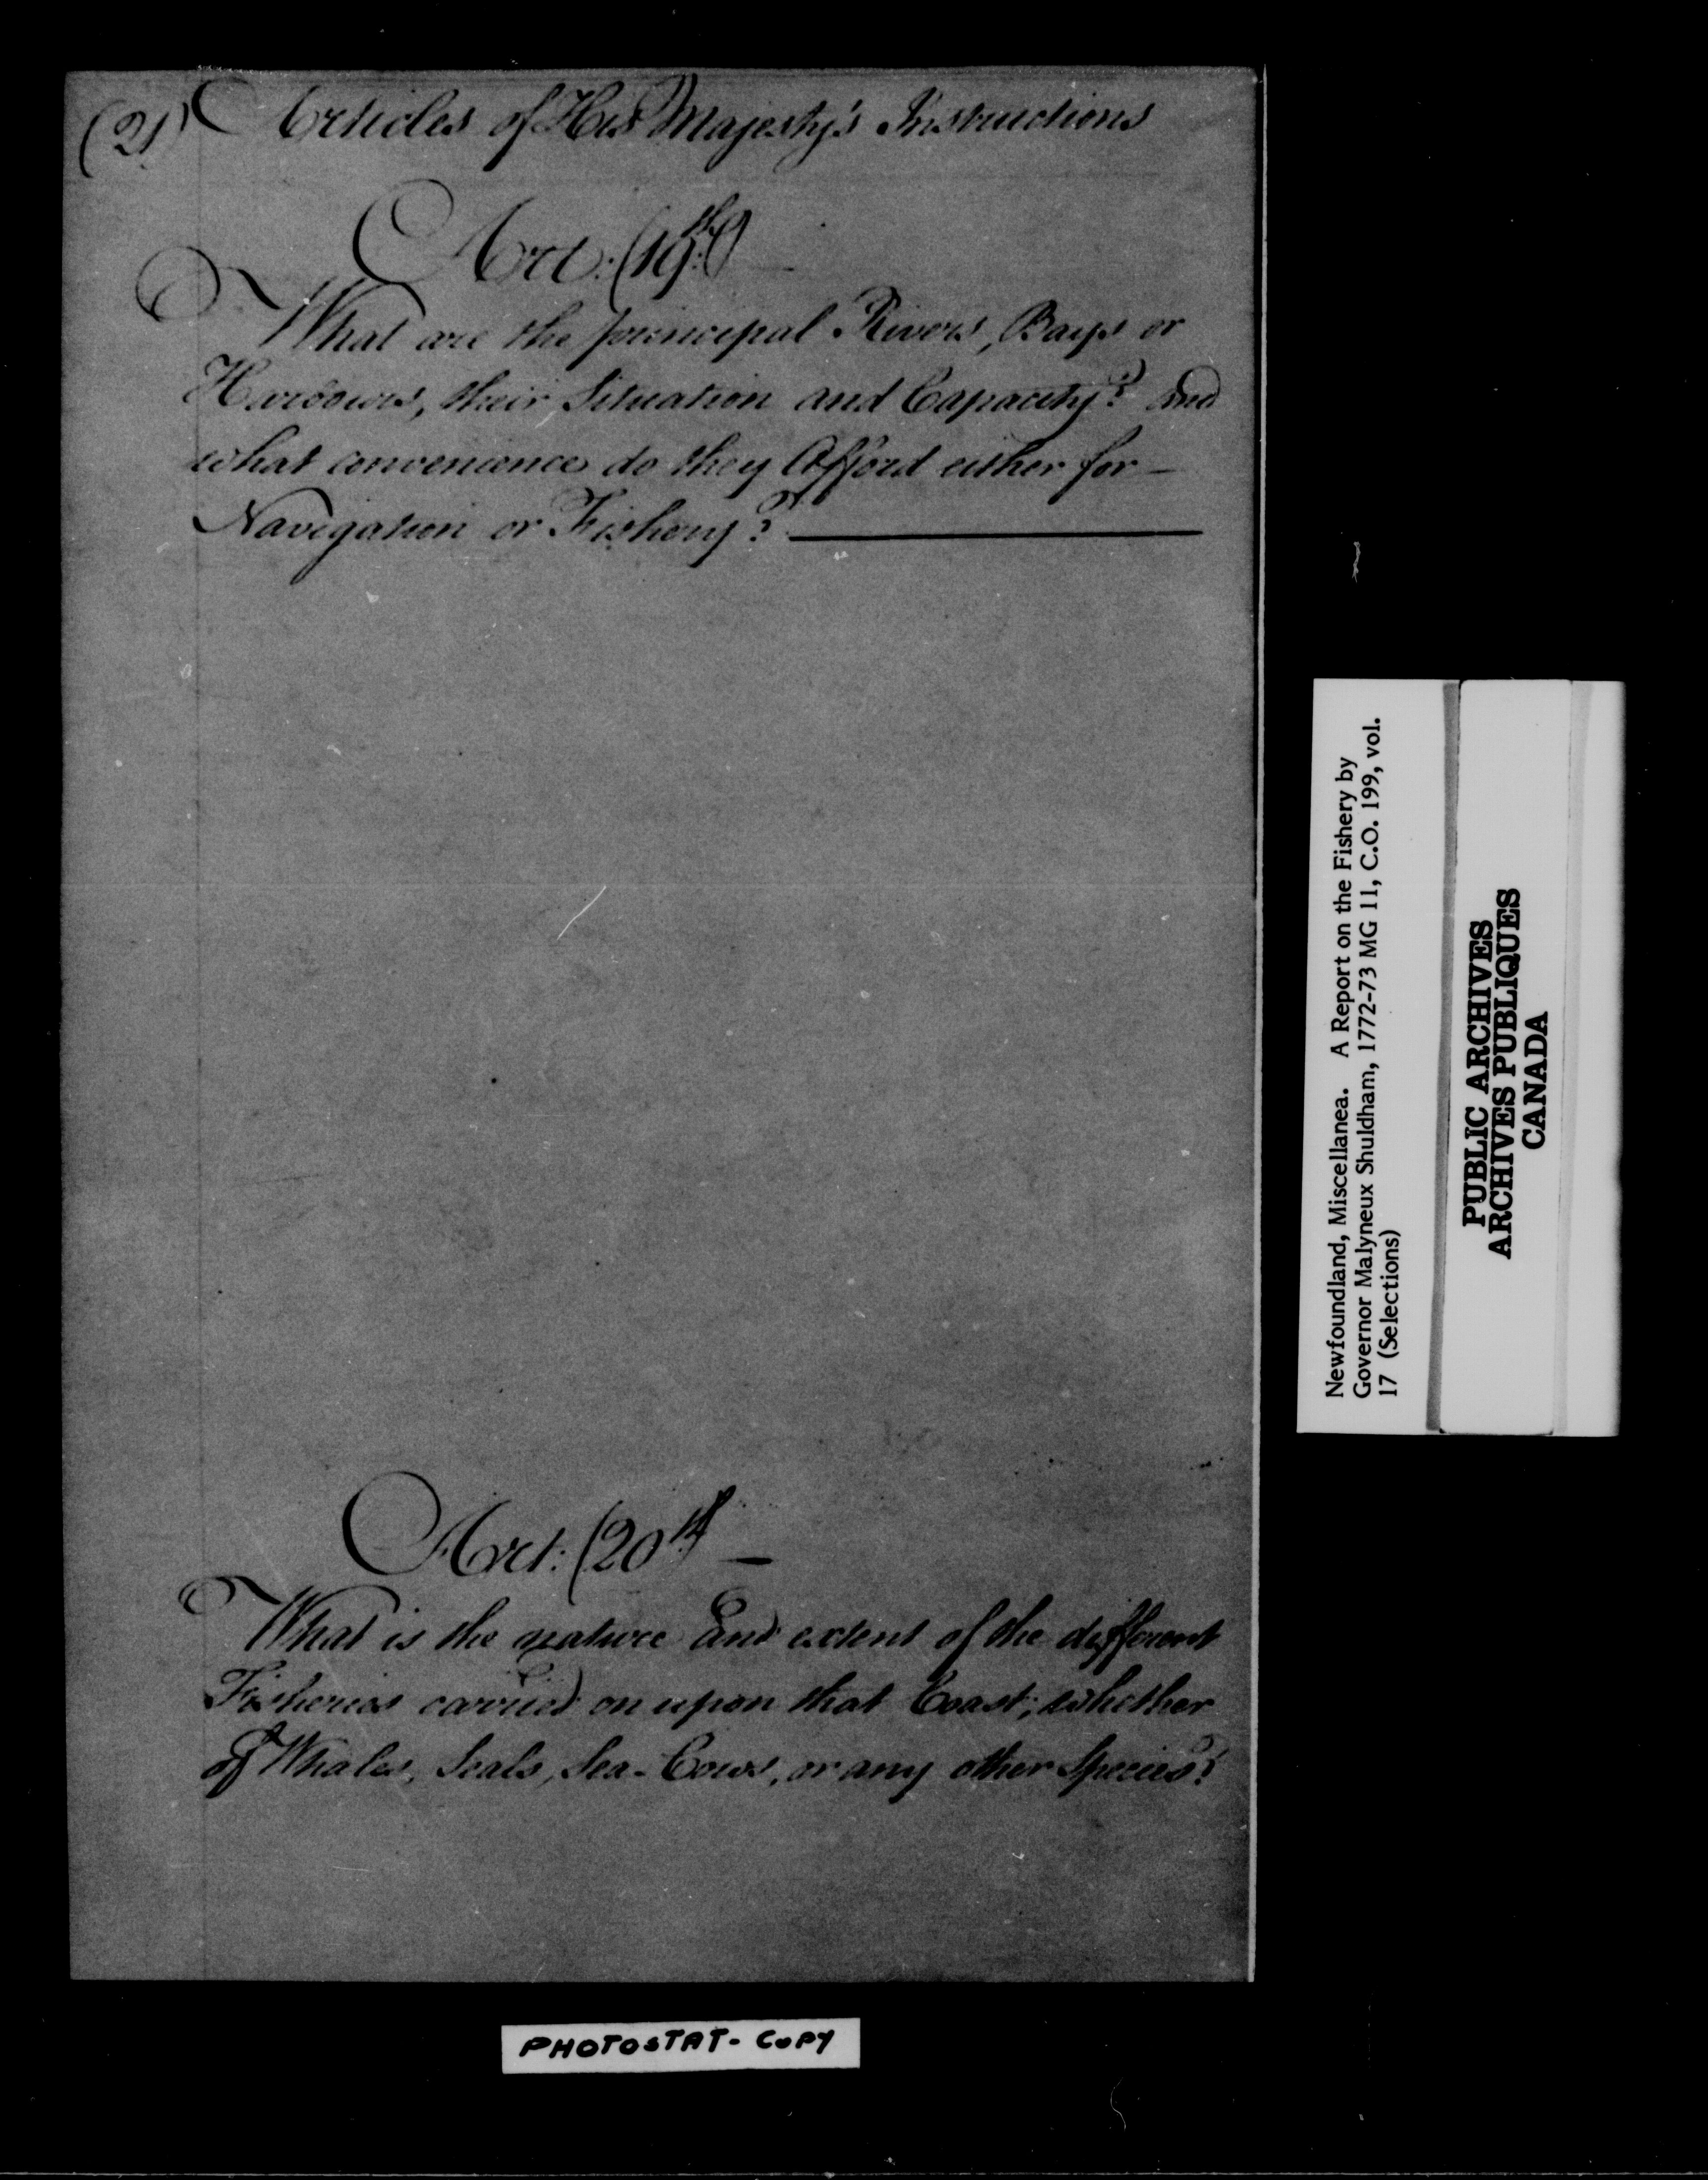 (21) Articles of His Majesty's Instructions
Art: (19th)
What are the principal Rivers, Bays or
Harbours, their Situation and Capacity? And
what convenience do they Afford either for
Navigation or Fishery?
Art: (20th) —
What is the nature and extent of the different
Fisheries carried on upon that Coast; whether
of Whales, Seals, Sea-Cows, or any other Species?
Newfoundland, Miscellanea. A Report on the Fishery by
Governor Malyneux Shuldham, 1772-73 MG 11, C.O. 199, vol.
17 (Selections)
PUBLIC ARCHIVES
ARCHIVES PUBLIQUES
CANADA
PHOTOSTAT-COPY